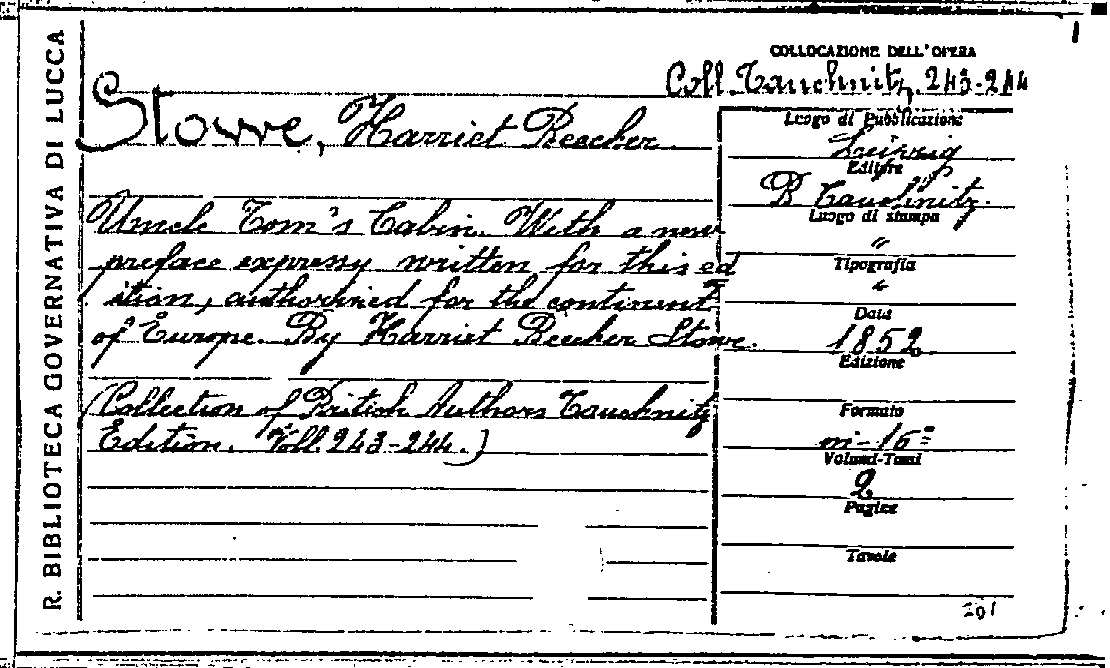 R. BIBLIOTECA GOVERNATIVA DI LUCCA
COLLOCAZIONE DELL'OPERA
Coll. Tauchnitz. 243-244
Stowe, Harriet Beecher
Uncle Tom's Cabin. With a new
preface expressy written for this ed
ition, authorized for the continent
of Europe. By Harriet Beecher Stowe.
(Collection of British Authors Tauchnitz
Edition. Voll. 243-244.)
Luogo di Pubblicazione
Leipzig
Editore
B. Tauchnitz.
Luogo di stampa
"
Tipografia
"
Data
1852
Edizione
Formato
in-16º
Volumi-Tomi
2
Pagine
Tavole
201